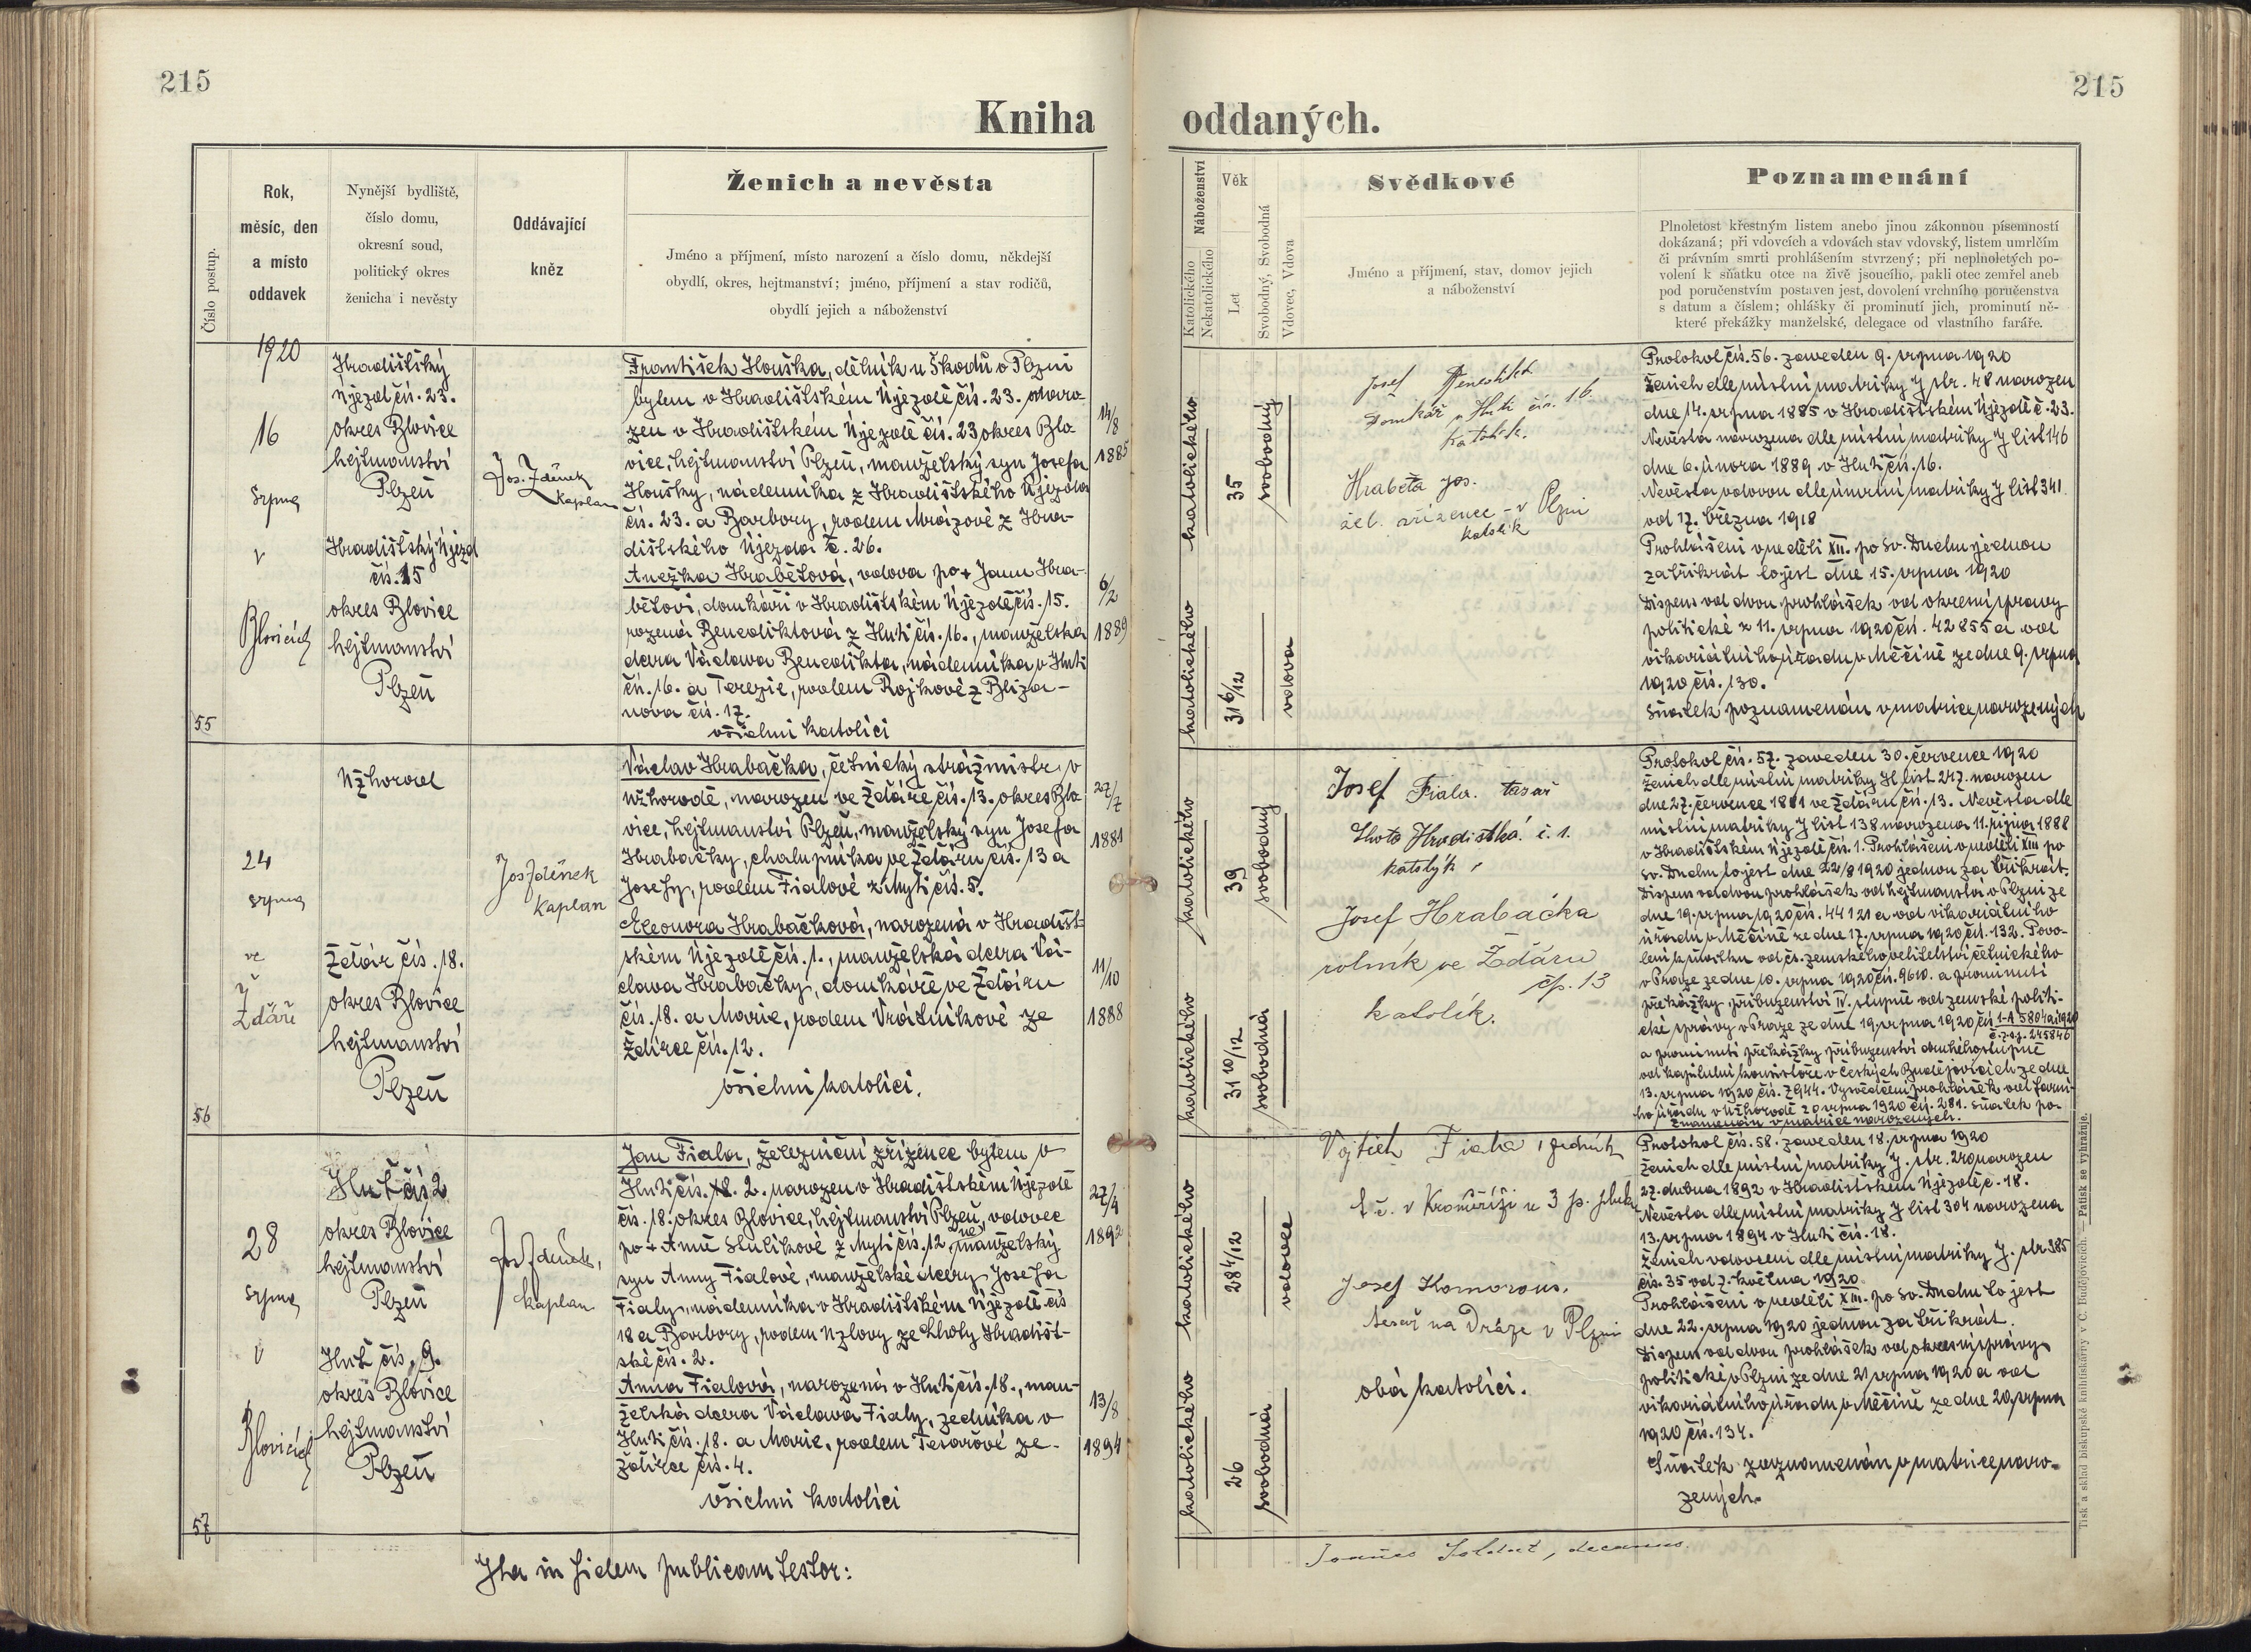 215
215
Kniha oddaných.
Číslo postup.
Rok,
měsíc, den
a místo
oddavek
Nynější bydliště,
číslo domu,
okresní soud,
politický okres
ženicha i nevěsty
Oddávající
kněz
Ženich a nevěsta
Jméno a příjmení, místo narození a číslo domu, někdejší
obydlí, okres, hejtmanství; jméno, příjmení a stav rodičů,
obydlí jejich a náboženství
Náboženství
Katolického
Nekatolického
Věk
Let
Svobodný, Svobodná
Vdovec, Vdova
Svědkové
Jméno a příjmení, stav, domov jejich
a náboženství
Poznamenání
Plnoletost křestným listem anebo jinou zákonnou písemností
dokázaná; při vdovcích a vdovách stav vdovský, listem umrlčím
či právním smrti prohlášením stvrzený; při neplnoletých po-
volení k sňatku otce na živě jsoucího, pakli otec zemřel aneb
pod poručenstvím postaven jest, dovolení vrchního poručenstva
s datum a číslem; ohlášky či prominutí jich, prominutí ně-
které překážky manželské, delegace od vlastního faráře.
1920
16
srpna
v
Blovicích
55
Hradištský
Újezd čís. 23.
okres Blovice
hejtmanství
Plzeň
Hradištský Újezd
čís. 15
okres Blovice
hejtmanství
Plzeň
Jos. Zdeněk
kaplan
František Houška, dělník u Škodů v Plzni
bytem v Hradištském Újezdě čís. 23. naro-
zen v Hradištském Újezdě čís. 23 okres Blo-
vice, hejtmanství Plzeň, manželský syn Josefa
Houšky, nádeníka z Hradištského Újezda
čís. 23. a Barbory, rodem Mrázové z Hra-
dištského Újezda č. 26.
Anežka Hrabětová, vdova po + Janu Hra-
bětovi, domkáři v Hradištském Újezdě čís. 15.
rozená Benediktová z Huti čís. 16., manželská
dcera Václava Benedikta, nádeníka v Huti
čís. 16. a Terezie, rodem Rojkové z Bliza-
nova čís. 17.
všichni katolíci
14/8
1885
6/2
1889
katolického
35
svobodný
katolického
31 6/12
vdova
Josef
domkář v Huti čís. 16.
katolík.
Hraběta Jos.
žel. zřízenec - v Plzni
katolík
Protokol čís. 56. zaveden 9. srpna 1920
Ženich dle místní matriky J str. 48 narozen
dne 14. srpna 1885 v Hradištském Újezdě č. 23.
Nevěsta narozena dle místní matriky J list 146
dne 6. února 1889 v Huti čís. 16.
Nevěsta vdovou dle úmrtní matriky J list 341
od 17. března 1918
Prohlášeni v neděli XII. po sv. Duchu jednou
za třikrát to jest dne 15. srpna 1920
Dispens od dvou prohlášek od okresní správy
politické z 11. srpna 1920 čís. 42855 a od
vikariátního úřadu v Měčíně ze dne 9. srpna
1920 čís. 130.
Sňatek poznamenán v matrice narozených
24
srpna
ve
Ždáře
56
Užhorod
Ždár čís. 18.
okres Blovice
hejtmanství
Plzeň
Jos Zdeněk
kaplan
Václav Hrabačka, četnický strážmistr v
Užhorodě, narozen ve Ždáře čís. 13. okres Blo
vice, hejtmanství Plzeň, manželský syn Josefa
Hrabačky, chalupníka ve Ždáru čís. 13 a
Josefy, rodem Fialové z Mýti čís. 5.
Eleonora Hrabačková, narozená v Hradišt-
ském Újezdě čís. 1., manželská dcera Vá-
clava Hrabačky, domkáře ve Ždáru
čís. 18. a Marie, rodem Vrátníkové ze
Ždírce čís. 12.
všichni katolíci.
27/7
1881
11/10
1888
katolického
39
svobodný
katolického
31 10/12
svobodná
Josef Fiala. tesař
Lhota Hradistká č. 1.
katolýk
Josef Hrabačka
rolník ve Ždáru
čp. 13
katolík.
Protokol čís. 57. zaveden 30. července 1920
Ženich dle místní matriky H list 247. narozen
dne 27. července 1881 ve Ždáru čís. 13. Nevěsta dle
místní matriky J list 138 narozena 11. října 1888
v Hradištském Újezdě čís. 1. Prohlášeni v neděli XIII po
sv. Duchu to jest dne 22/8 1920 jednou za třikrát.
Dispens od dvou prohlášek od hejtmanství v Plzni ze
dne 19. srpna 1920 čís. 44121 a od vikariátního
úřadu v Měčíně ze dne 17. srpna 1920 čís. 132. Povo-
lení k sňatku od čs. zemského velitelství četnického
v Praze ze dne 10. srpna 1920 čís. 9610. a prominutí
překážky příbuzenství IV. stupně od zemské politi-
cké správy v Praze ze dne 19. srpna 1920 čís
a prominutí překážky příbuzenství druhého stupně
od kapitulní konsistoře v Českých Budějovicích ze dne
13. srpna 1920 čís. 7944. Vysvědčení prohlášek od farní-
ho úřadu v Užhorodě 20 srpna 1920 čís. 281. Sňatek po-
znamenán v matrice narozených.
28
srpna
v
Blovicích
57
Huť čís. 2
okres Blovice
hejtmanství
Plzeň
Huť čís. 9.
okres Blovice
hejtmanství
Plzeň
Jos Zdeněk,
kaplan
Jan Fiala, železniční zřízenec bytem v
Huti čís. 2. narozen v Hradištském Újezdě
čís. 18. okres Blovice, hejtmanství Plzeň, vdovec
po + Anně Sulíkové z Mýti čís. 12, nemanželský
syn Anny Fialové, manželské dcery Josefa
Fialy, nádeníka v Hradištském Újezdě čís
18 a Barbory, rodem Uzlovy ze Lhoty Hradišt-
ské čís. 2.
Anna Fialová, narozená v Huti čís. 18., man-
želská dcera Václava Fialy, zedníka v
Huti čís. 18. a Marie, rodem Tesařové ze
Ždírce čís. 4.
všichni katolíci
27/4
1892
13/8
1894
katolického
28 4/12
vdovec
katolického
26
svobodná
Vojtěch Fiala, zedník
t. č. v Kroměříži u 3 p. pluk
Josef Komorous.
tesař na Dráze v Plzni
obá katolíci.
Protokol čís. 58. zaveden 18. srpna 1920
Ženich dle místní matriky J. str. 240 narozen
27. dubna 1892 v Hradistském Újezdě č. 18.
Nevěsta dle místní matriky J list 304 narozena
13. srpna 1894 v Huti čís. 18.
Ženich vdovcem dle místní matriky J. str 385
čís. 35 od 7. května 1920
Prohlášeni v neděli XIII. po sv. Duchu to jest
dne 22. srpna 1920 jednou za třikrát.
Dispens od dvou prohlášek od okresní správy
politické v Plzni ze dne 21 srpna 1920 a od
vikariátního úřadu v Měčíně ze dne 20. srpna
1920 čís. 134.
Sňatek zaznamenán v matrice naro-
zených.
Ita in fidem publicam testor:
Joannes Soldat, decanus.
Tisk a sklad biskupské knihtiskárny v Č. Budějovicích. — Patisk se vyhražuje.